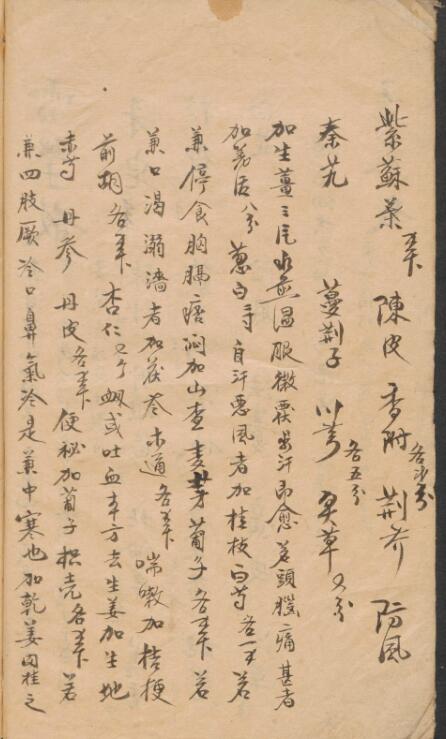 紫蘇葉 陳皮 香附 荆芥 防風
秦艽 蔓荆子 川芎 各五分 炙草 分
加生薑三片水煎温服微覆似汗而愈若頭腦痛甚者
加羌活八分 蔥白 自汗惡風者加桂枝白芍各一 若
兼停食胸膈痞悶加山查麦芽蔔子各 若
兼口渴溺濇者加茯苓木通各 喘嗽加桔梗
前胡各 杏仁 衂或吐血本方去生姜加生地
赤芍 丹參 丹皮各 便祕加蔔子枳壳各 若
兼四肢厥冷口鼻氣冷是兼中寒也加乾姜肉桂之